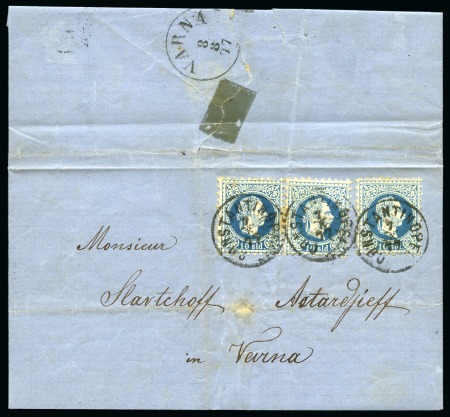 VARNA
8
8
77
10 sld.
10 sld.
10 sld.
Monsieur
Slavtchoff Astardjieff
in Varna